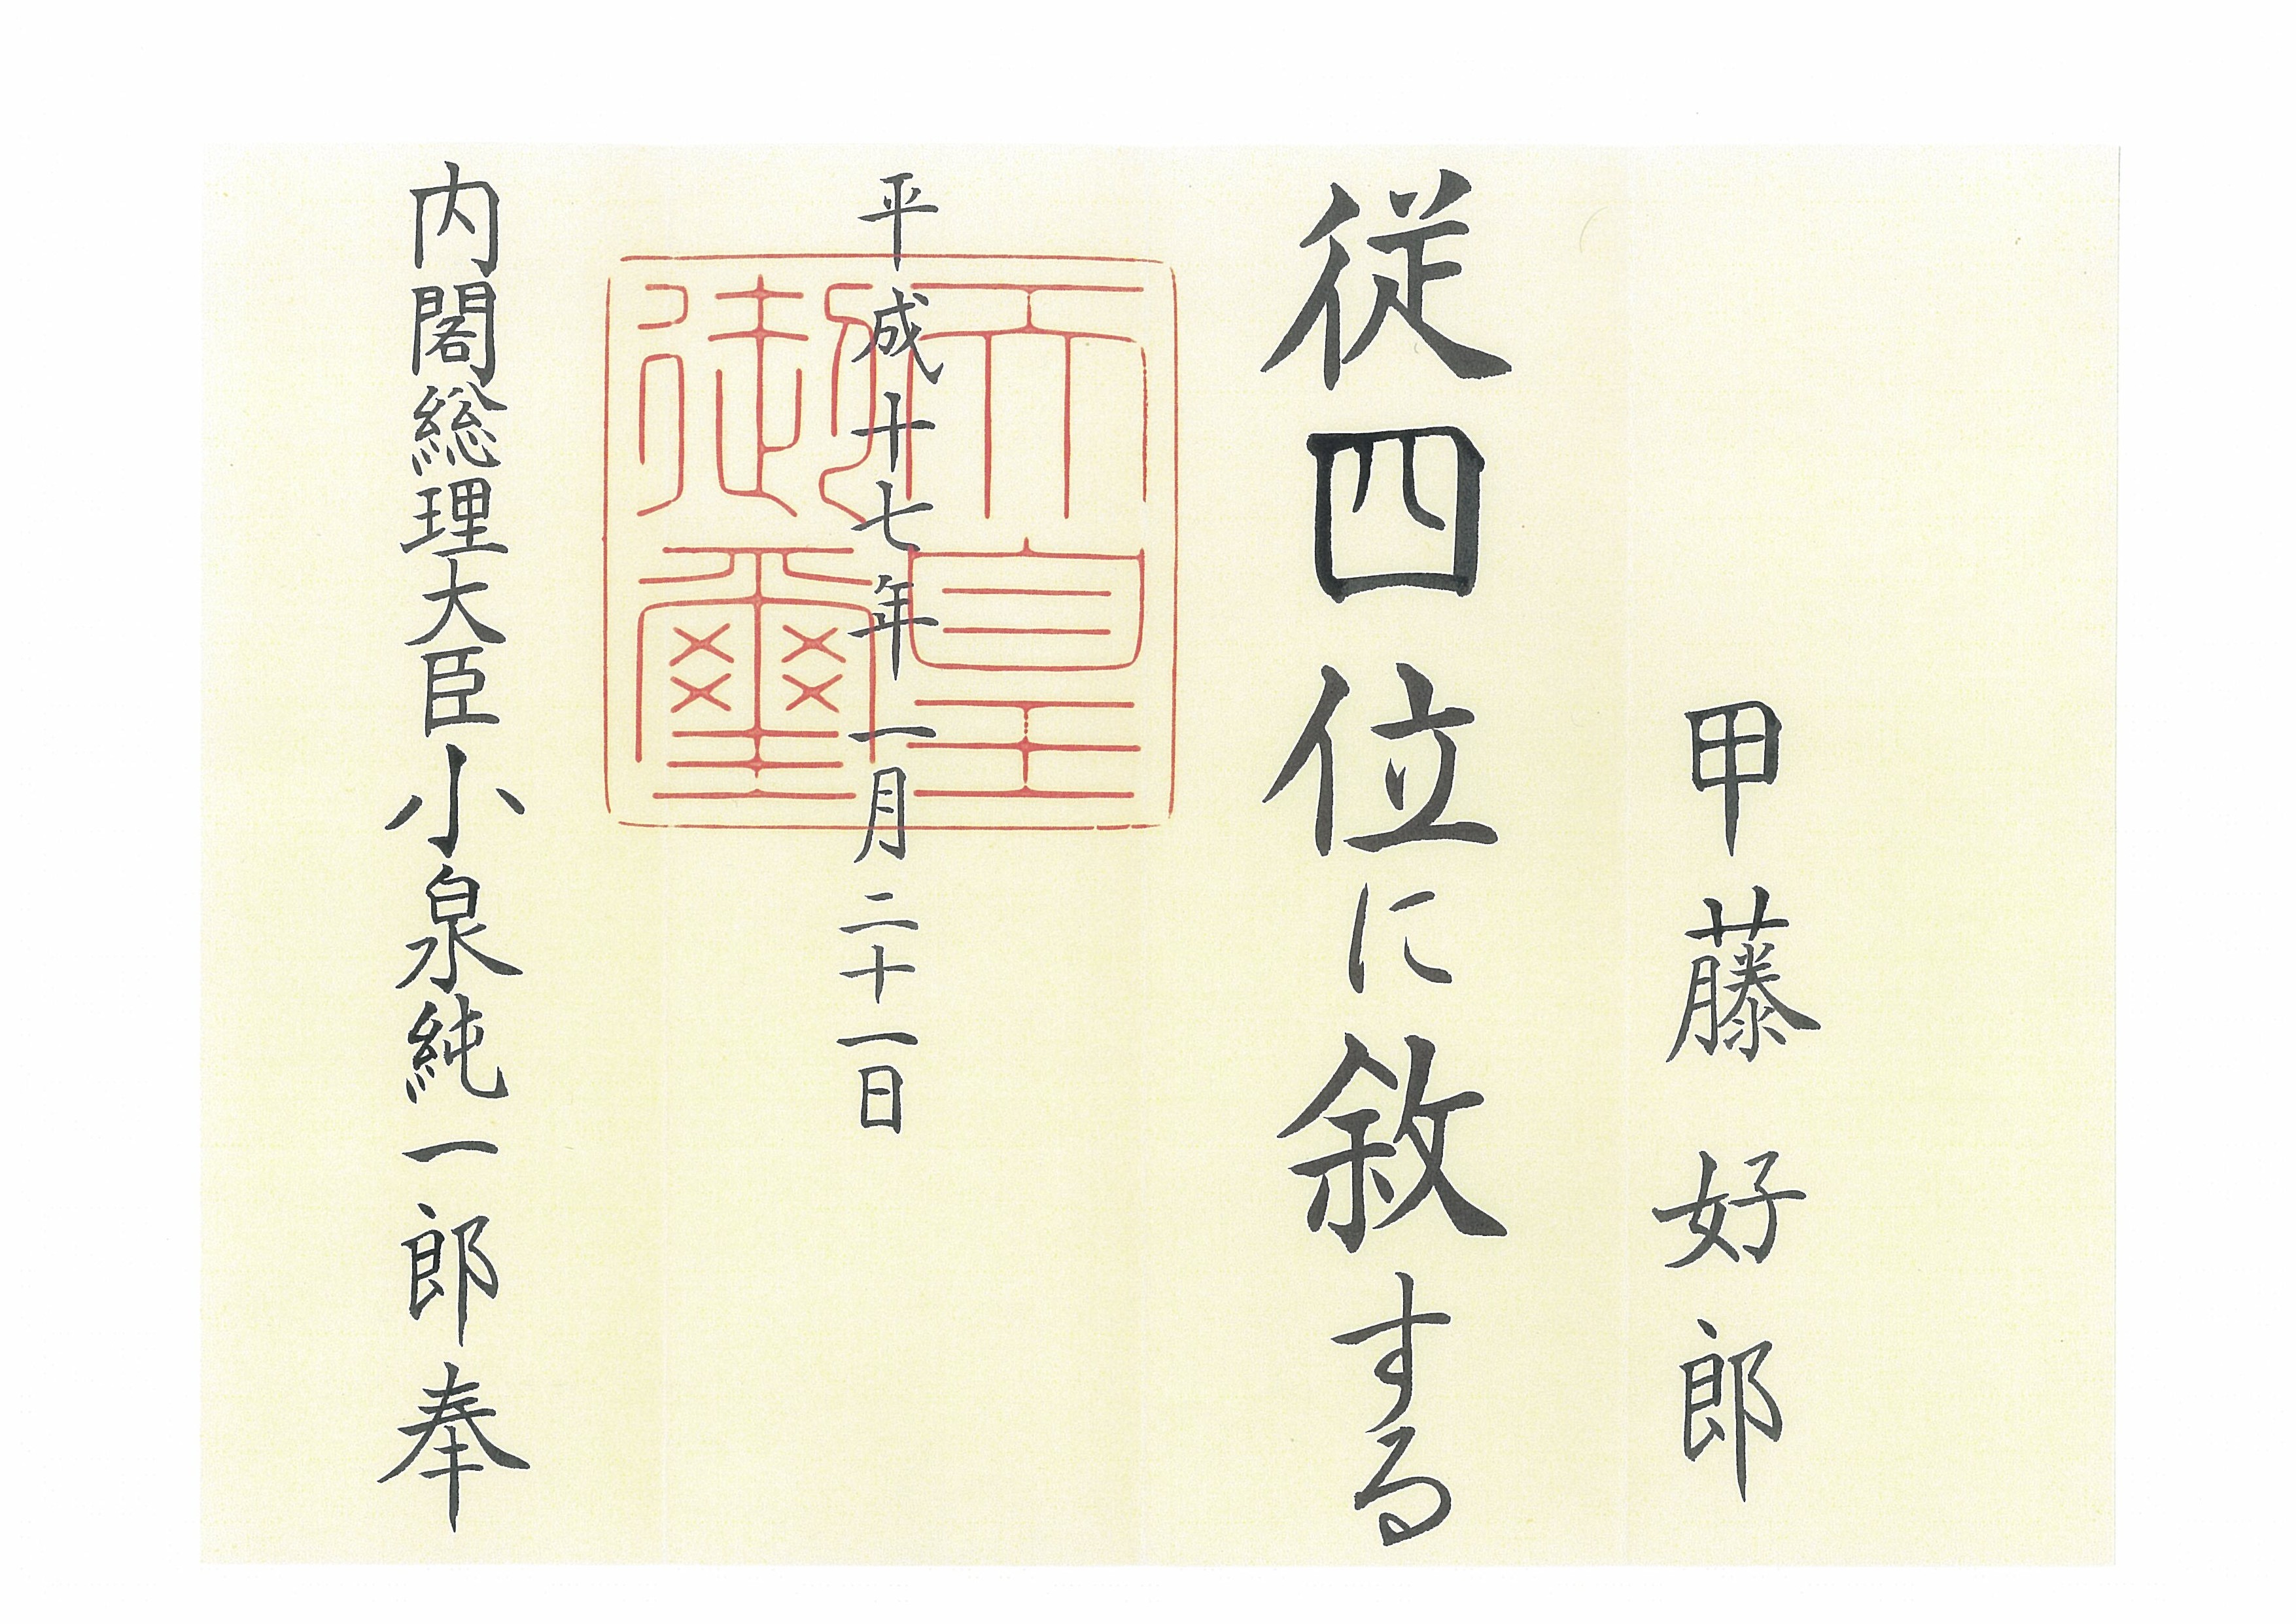 甲藤好郎
従四位に敘する
平成十七年一月二十一日
内閣総理大臣小泉純一郎奉
天皇
御璽